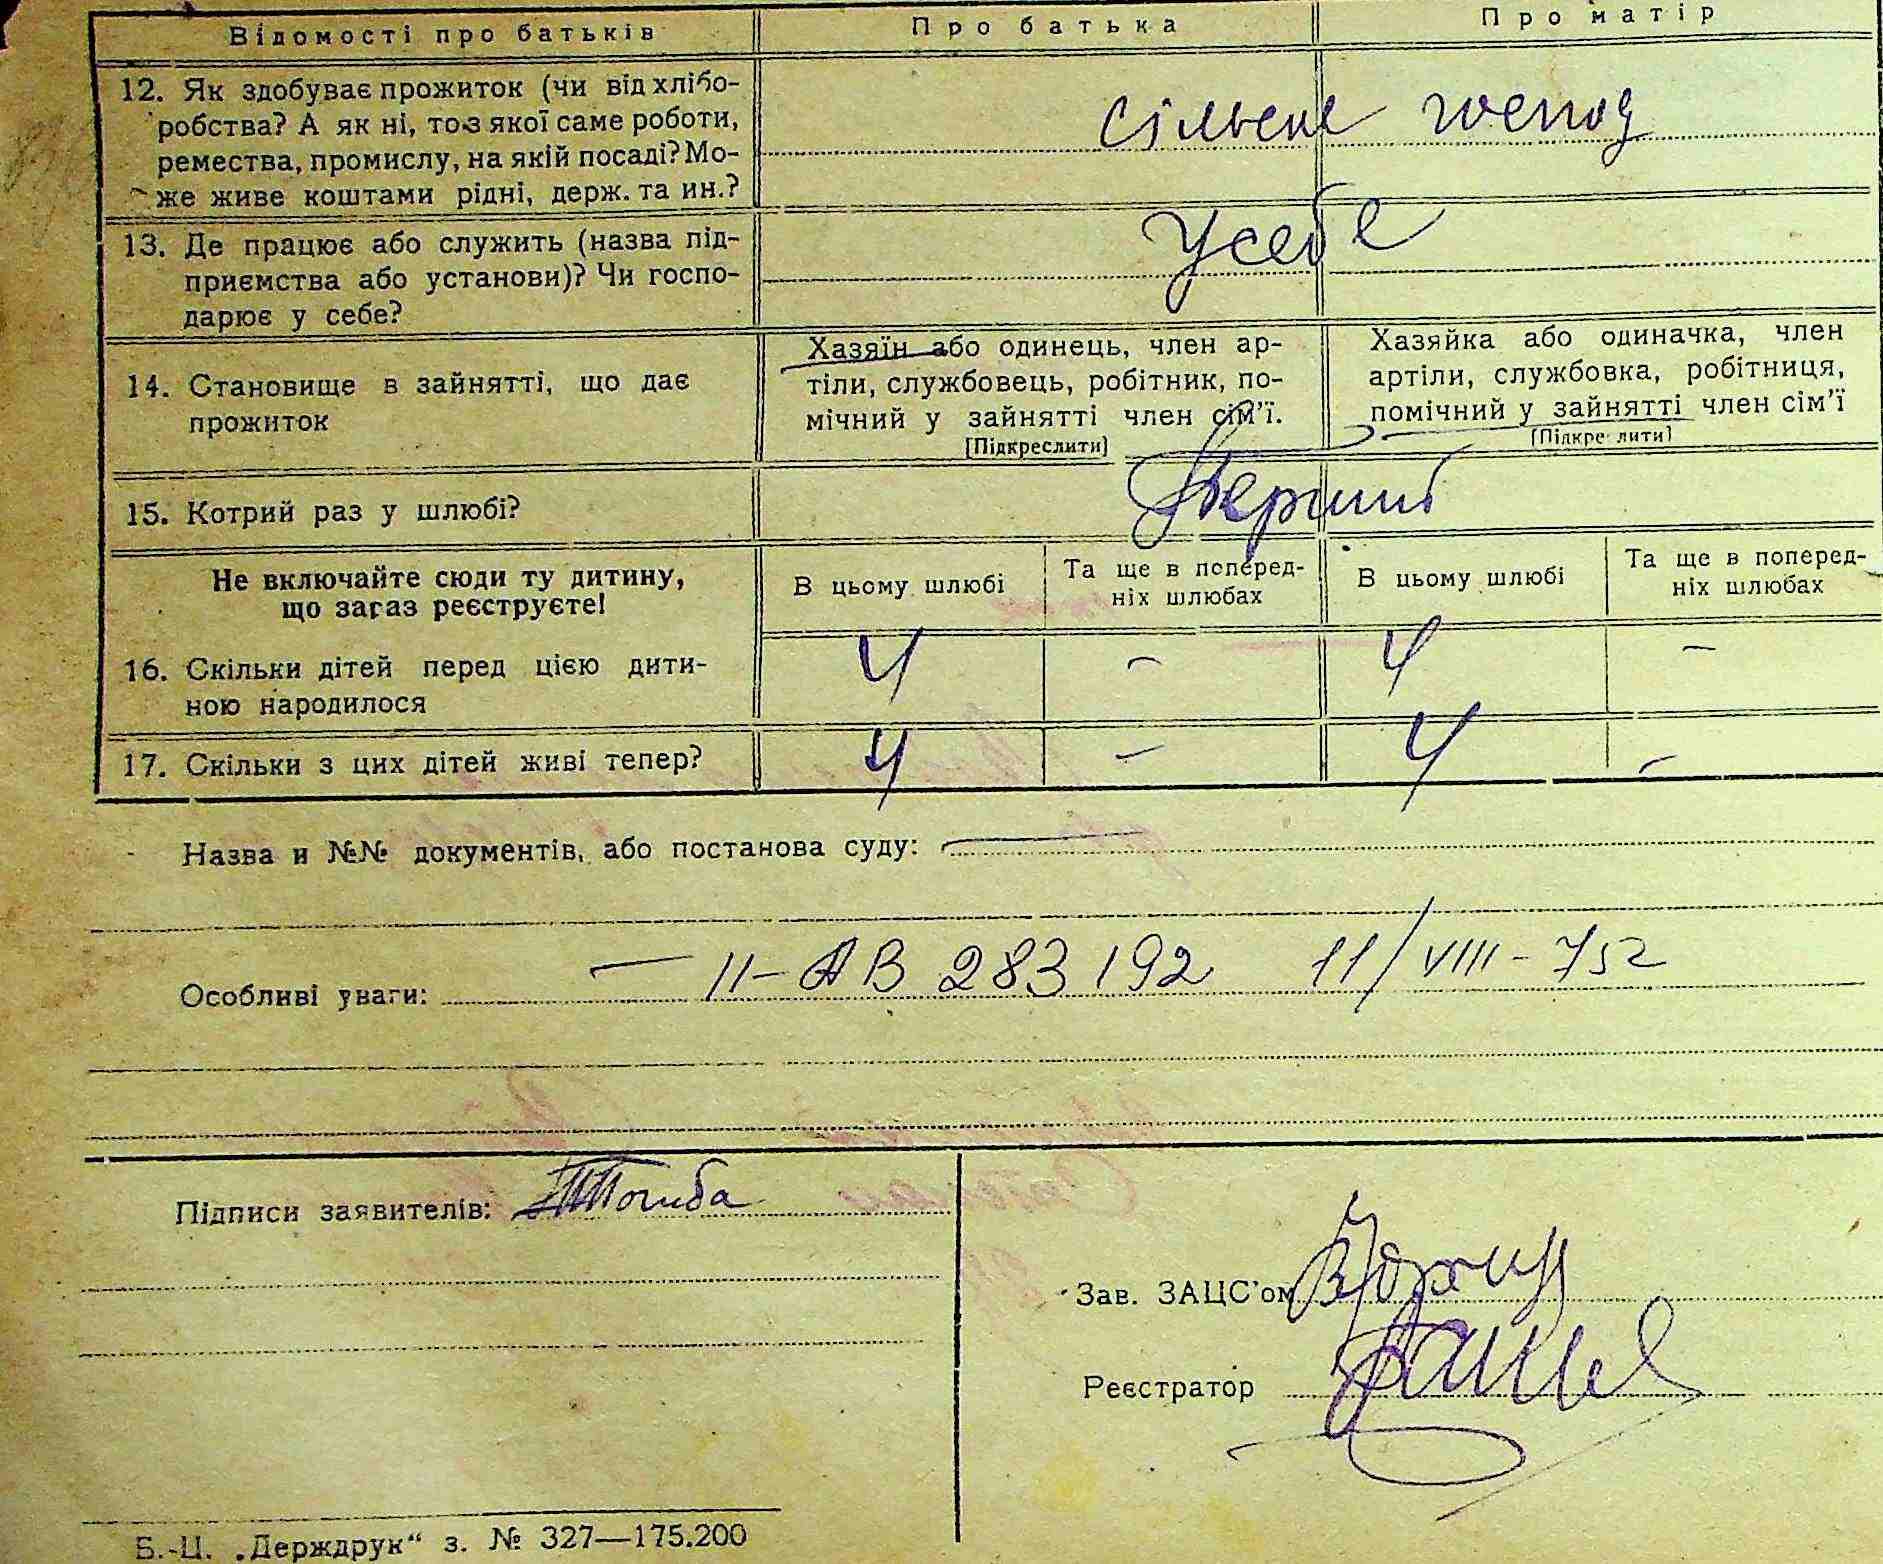 Відомості про батьків Про батька Про матір
12. Як здобуває прожиток (чи від хлібо-
робства? А як ні, то з якої саме роботи,
ремества, промислу, на якій посаді? Мо-
же живе коштами рідні, держ. та ин.?
сільське
13. Де працює або служить (назва під-
приємства або установи)? Чи госпо-
дарює у себе?
У себе
14. Становище в зайнятті, що дає
прожиток
Хазяїн або одинець, член ар-
тіли, службовець, робітник, по-
мічний у зайнятті член сім'ї.
[Підкреслити]
Хазяйка або одиначка, член
артіли, службовка, робітниця,
помічний у зайнятті член сім'ї
[Підкреслити]
15. Котрий раз у шлюбі?
Перший
Не включайте сюди ту дитину,
що зараз реєструєте!
В цьому шлюбі
Та ще в поперед-
ніх шлюбах
В цьому шлюбі
Та ще в поперед-
ніх шлюбах
16. Скільки дітей перед цією дити-
ною народилося
4 — 4 —
17. Скільки з цих дітей живі тепер? 4 — 4 —
Назва и №№ документів, або постанова суду: —
Особливі уваги: — II-АВ 283192 11/VIII-752
Підписи заявителів:
Зав. ЗАЦС'ом
Реєстратор
Б.-Ц. „Держдрук“ з. № 327—175.200